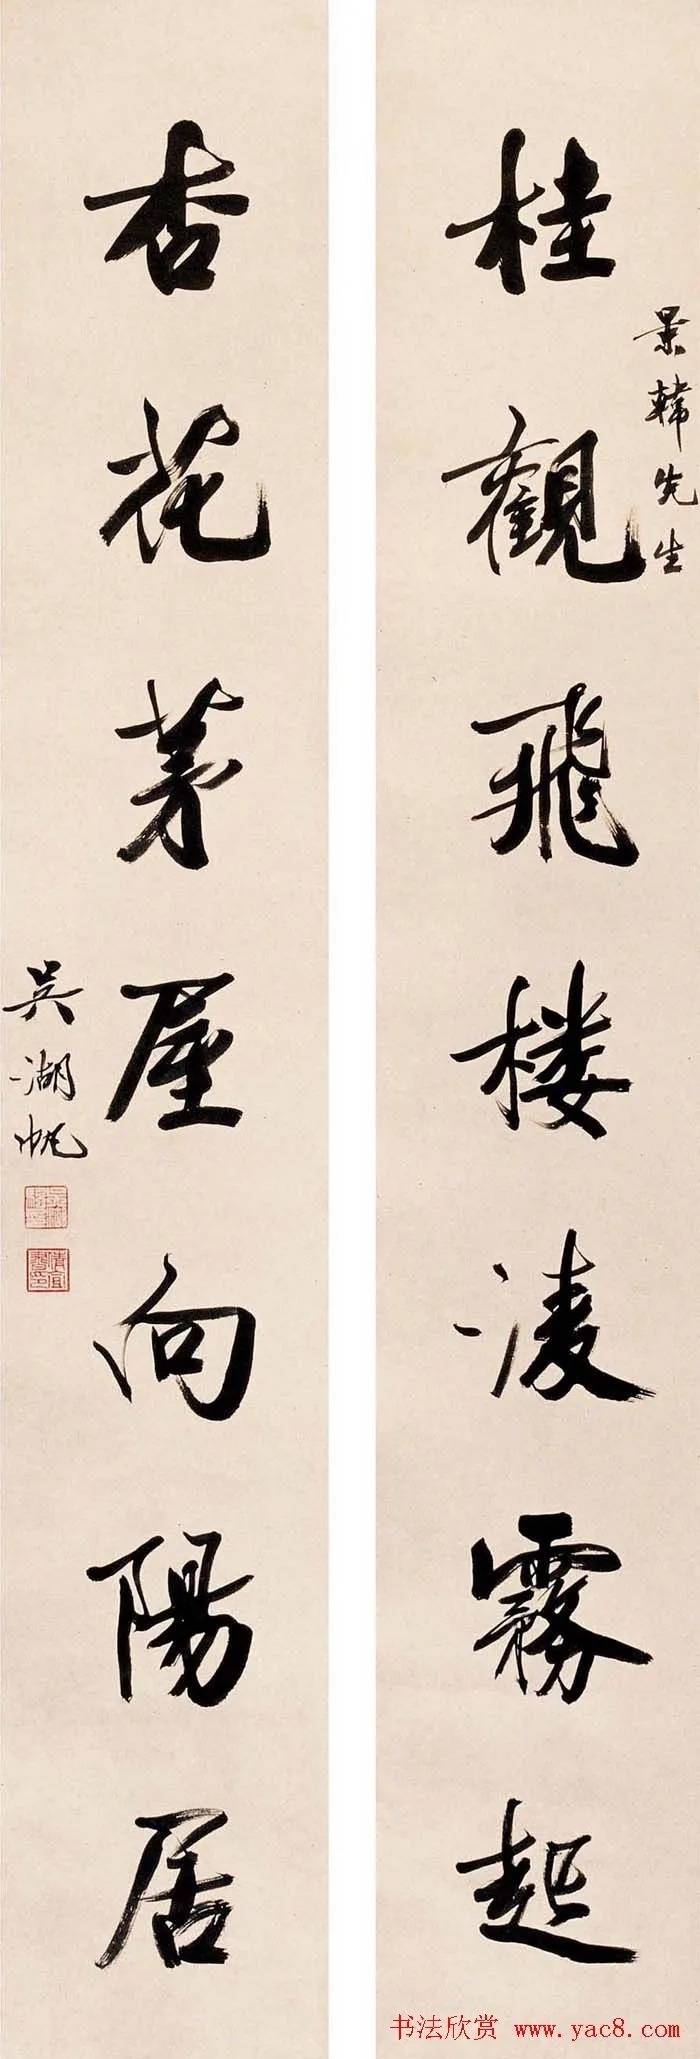 景韓先生
桂觀飛楼淩霧起
杏花茅屋向陽居
吴湖帆
书法欣赏 www.yac8.com